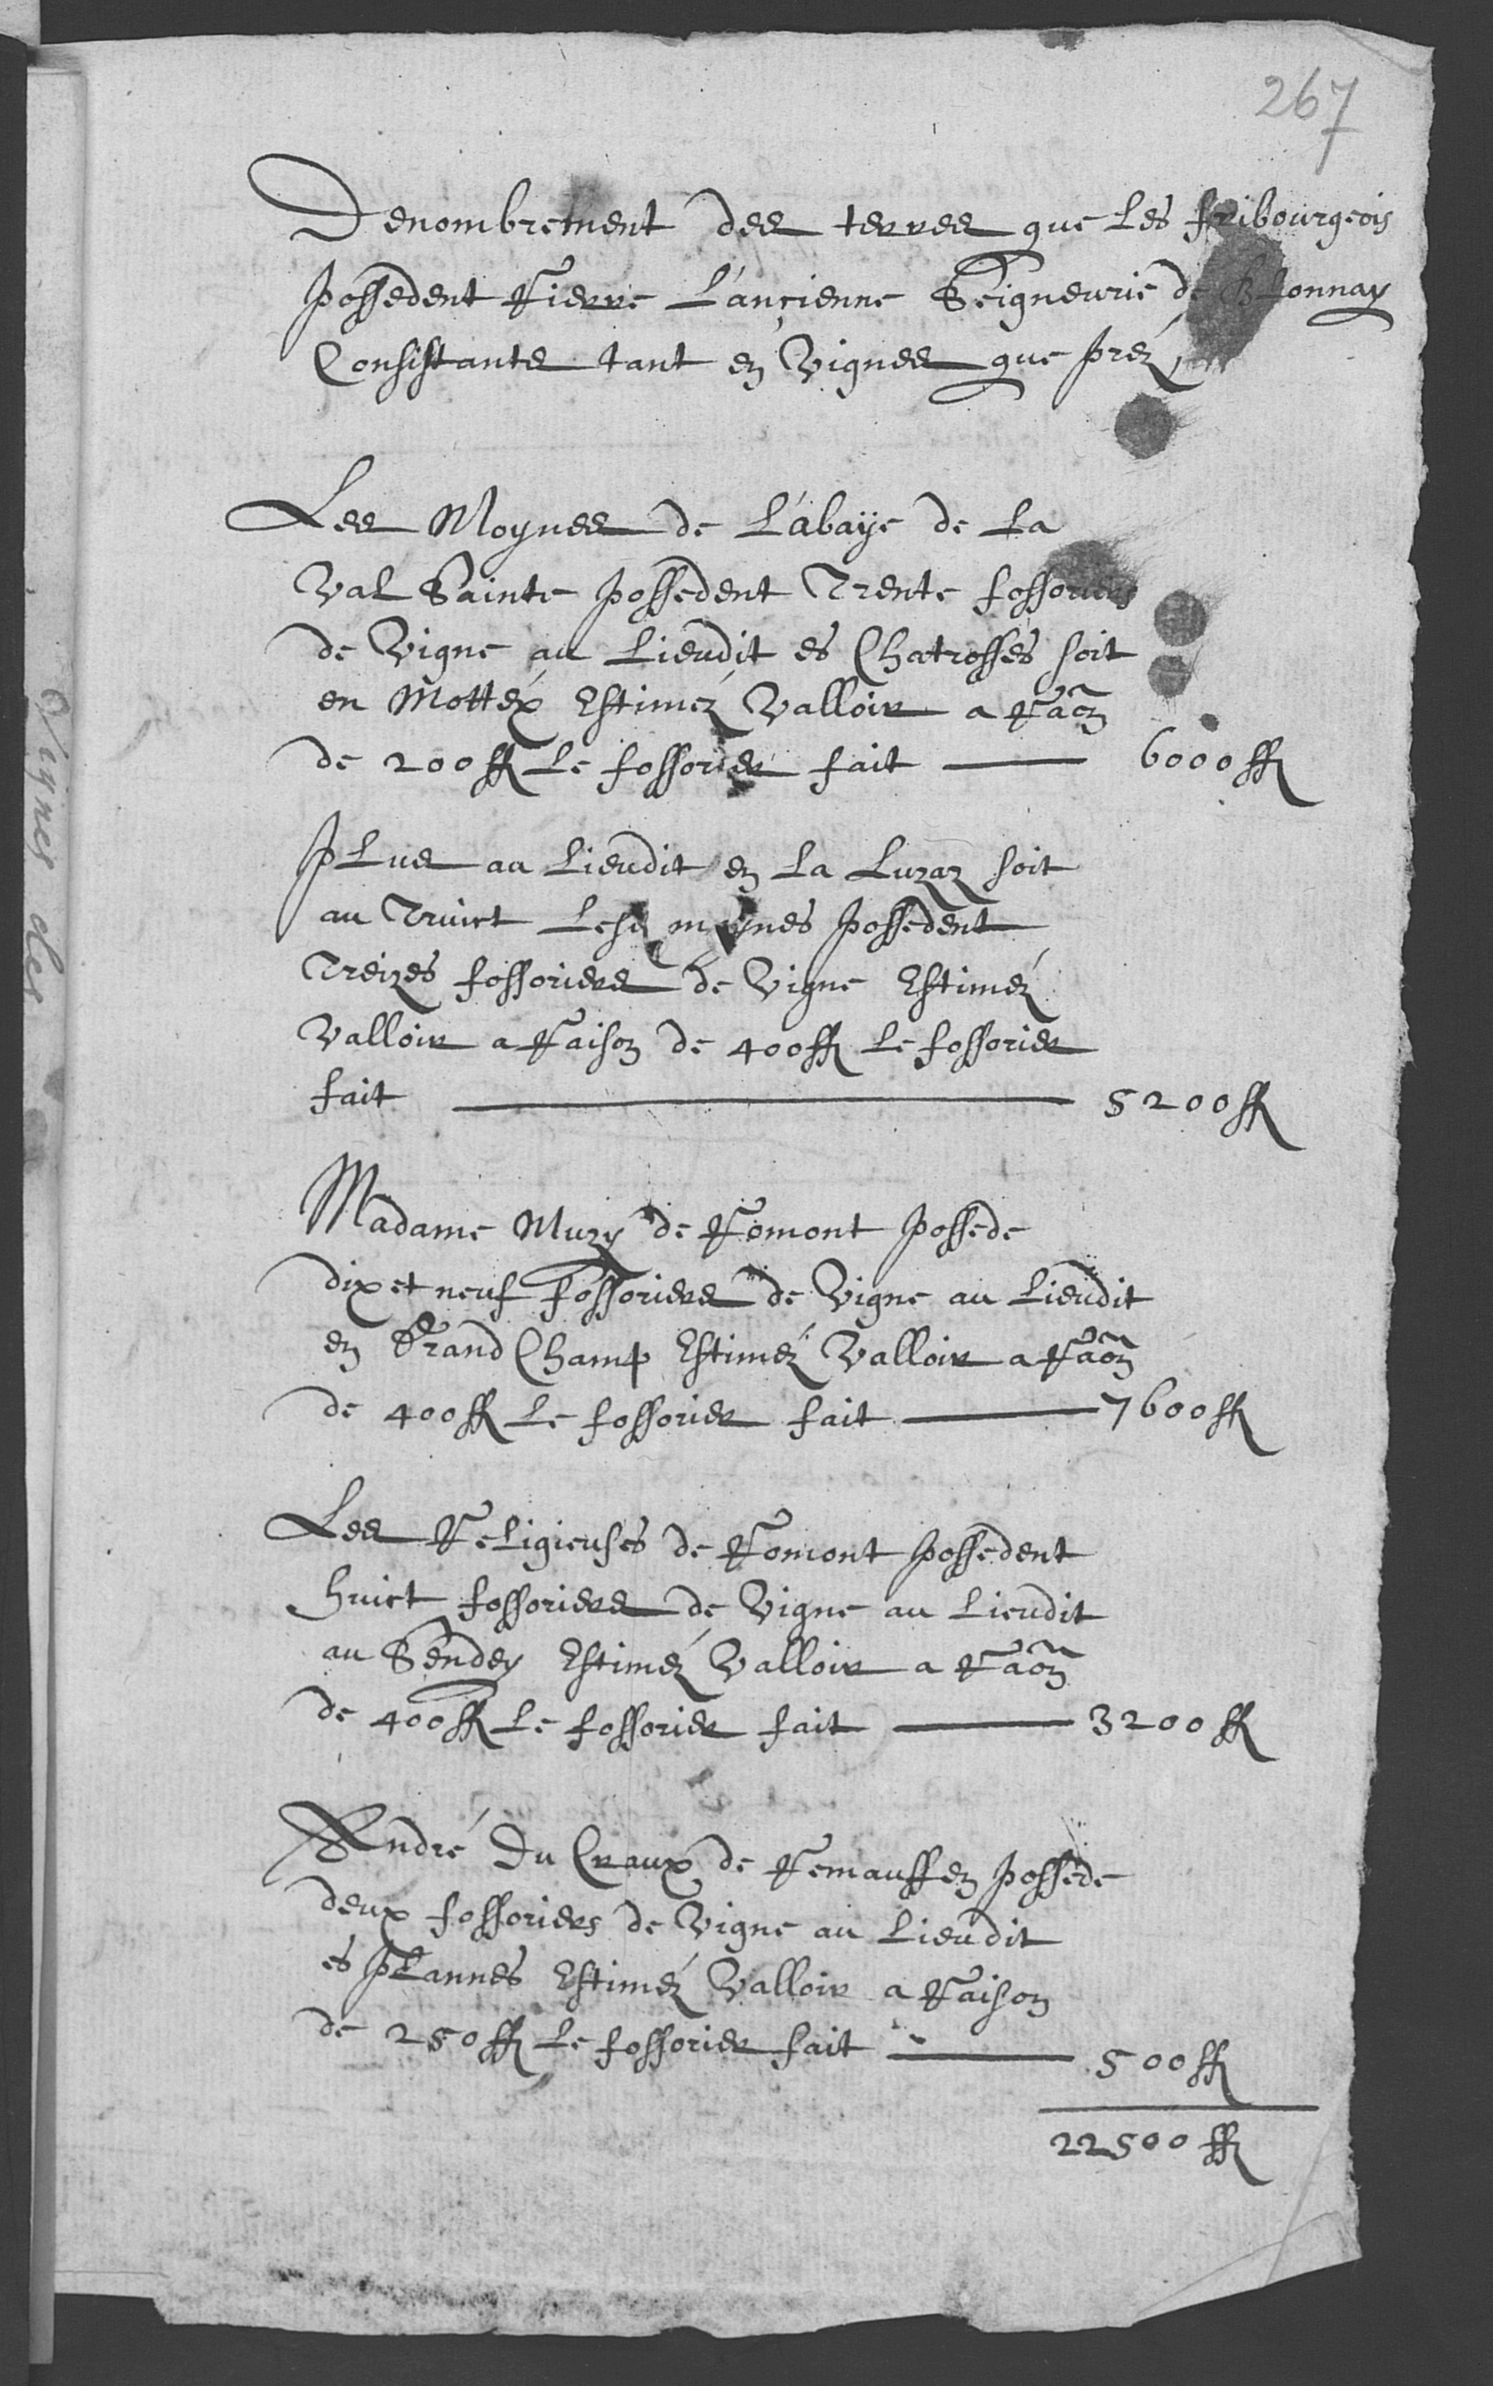 267
Denombrement des terres que les fribourgeois
possedent Rierre L'ancienne Seigneurie de Blonnay
Consistants tant en Vignes que préz
Les Moynes de L'abaÿe de La
Val Sainte possedent Trente fossoriers
de Vigne au Lieudit es Chatrosses soit
en Mottéx Estiméz Valloir a Raõn
de 200 ff Le fossorier fait — 6000 ff
PLus au Lieudit en La Luzaz soit
au Truict Lesd moynes possedent
Treizes fossoriers de Vigne Estiméz
Valloir a Raison de 400 ff Le fossorier
fait — 5200 ff
Madame Muzy de Romont possede
dix et neuf fossoriers de Vigne au Lieudit
en Grand Champ Estiméz Valloir a Raõn
de 400 ff Le fossorier fait — 7600 ff
Les Religieuses de Romont possedent
huict fossoriers de Vigne au Lieudit
au Sendey Estiméz Valloir a Raõn
de 400 ff Le fossorier fait — 3200 ff
André Du Craux de Remauffen possede
deux fossoriers de Vigne au Lieudit
es pLannes Estiméz Valloir a Raison
de 250 ff Le fossorier fait — 500 ff
22500 ff
Vignes des